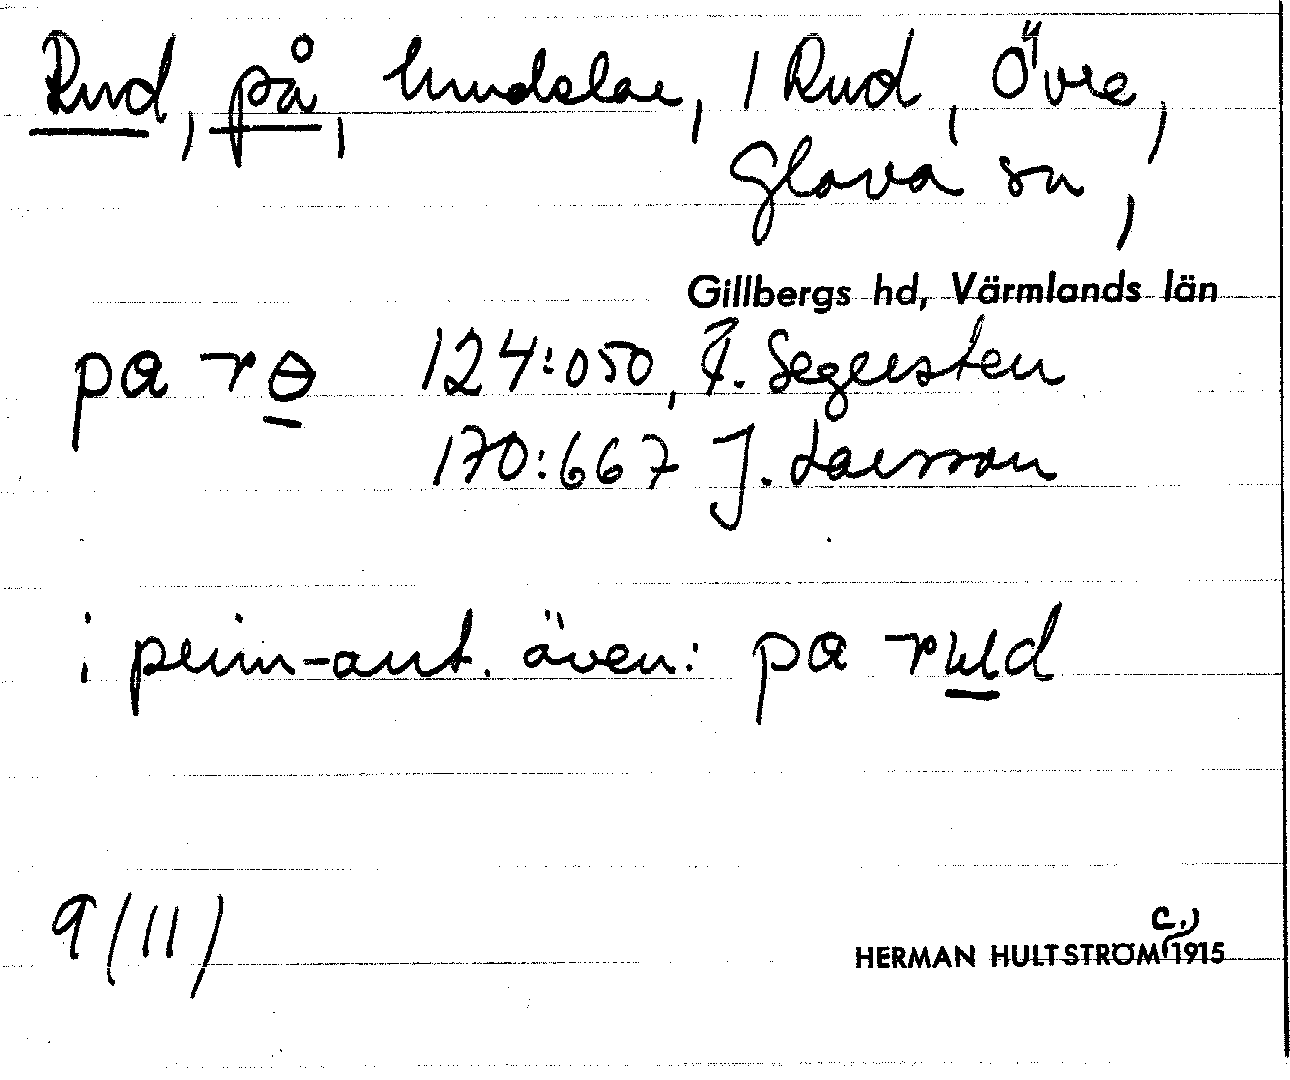 Rud, på, hundslae, / Rud, Övre,
Glava sn,
Gillbergs hd, Värmlands län
pa rɵ 124:050, F. Segersten
170:667 J. Larsson
i prim-ant. även: pa rud
9 (11)
c.
HERMAN HULTSTRÖM 1915